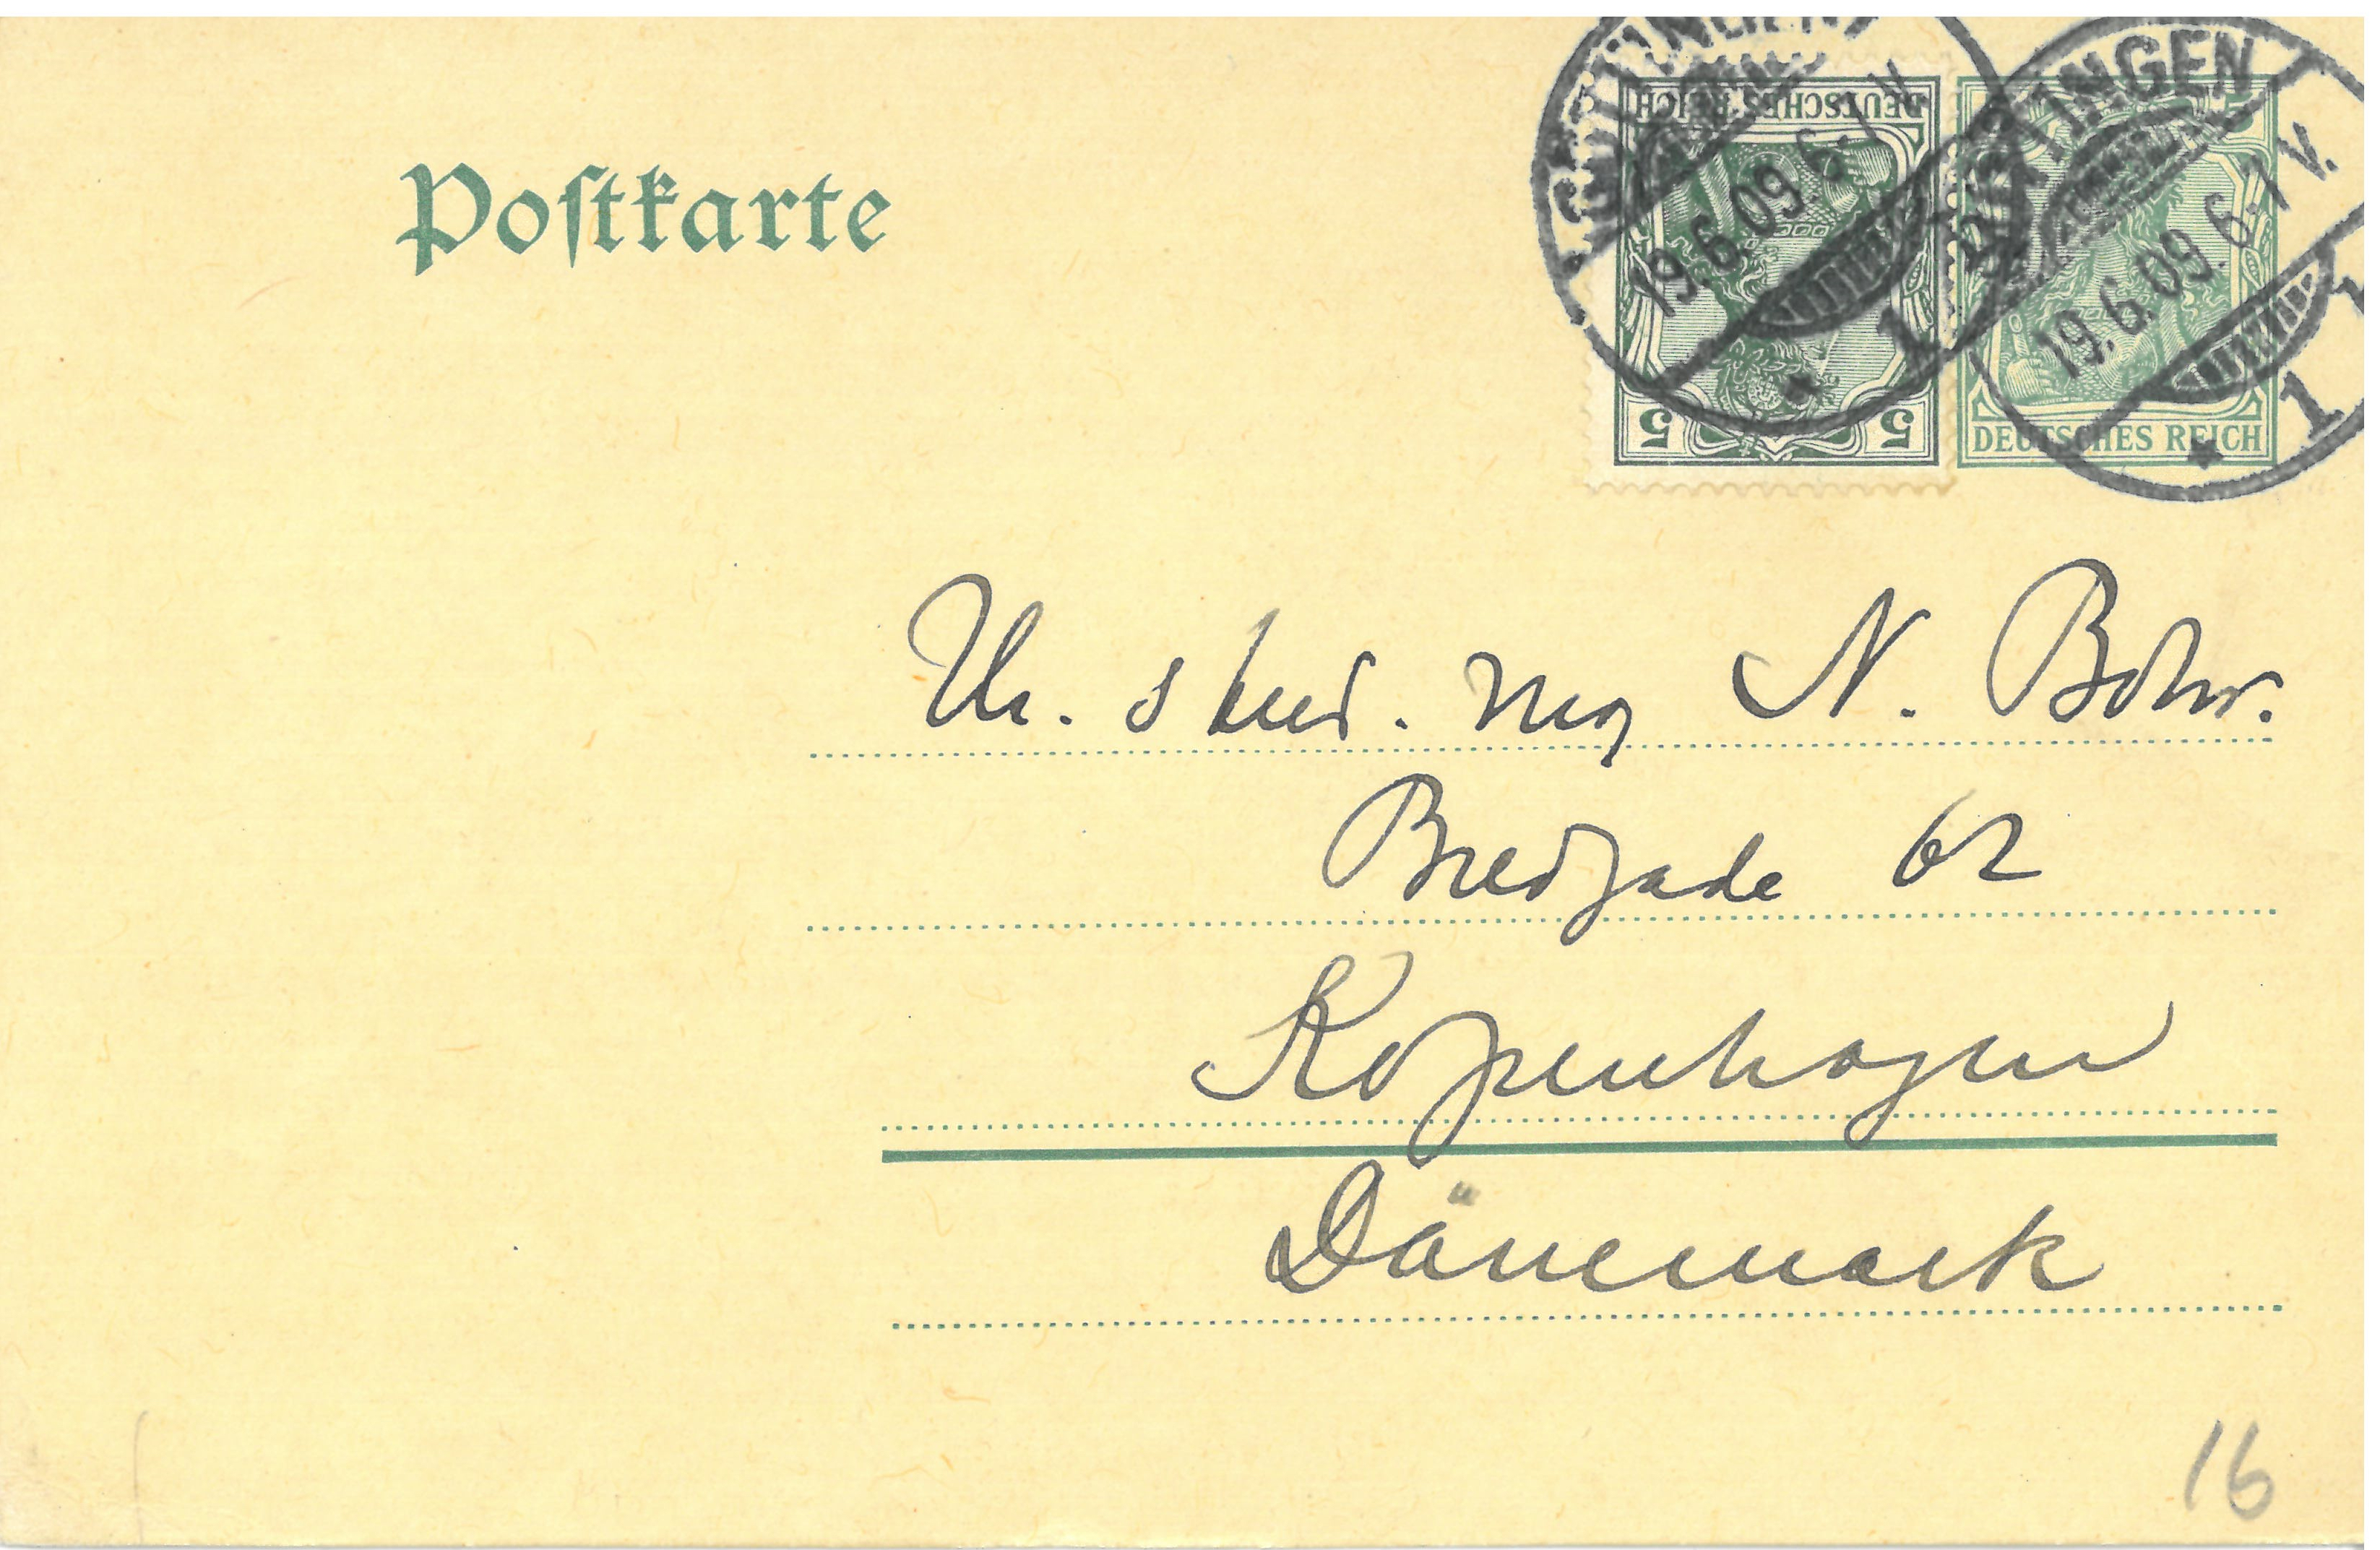 Postkarte
GÖTTINGEN
19.6.09. 6-7 V.
1
DEUTSCHES REICH
5 5
GÖTTINGEN
19.6.09. 6-7 V.
1
DEUTSCHES REICH
Hr. stud. mag N. Bohr.
Bredgade 62
Kopenhagen
Dänemark
16